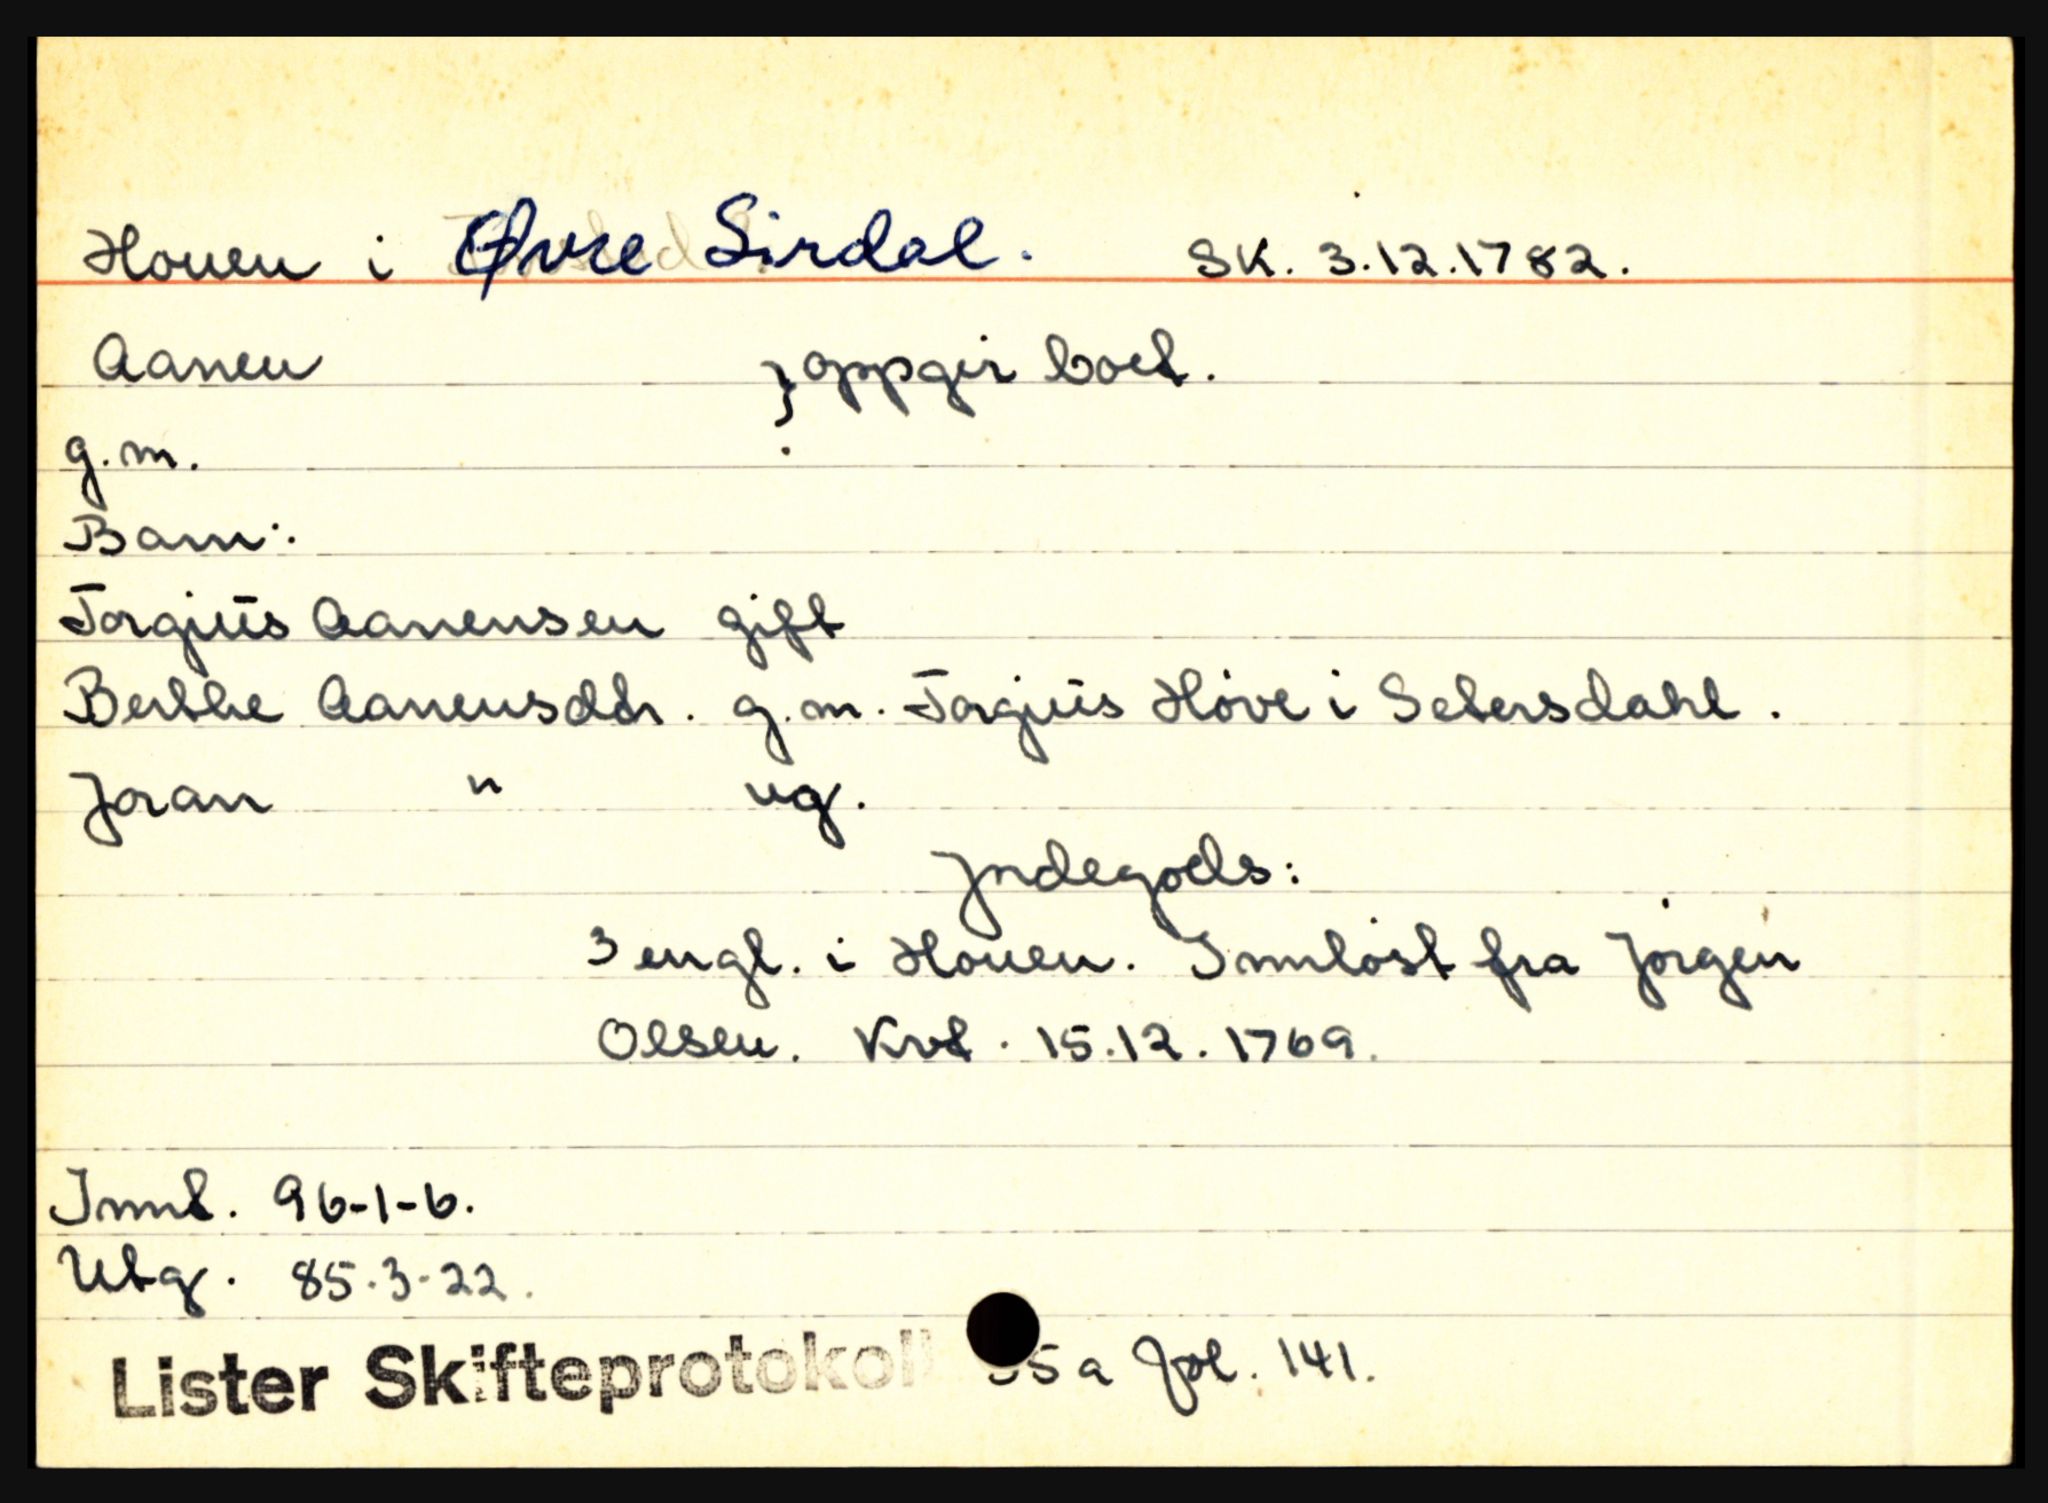 Houen i Øvre Sirdal. SK. 3.12.1782.
Aanen } oppgir boet.
g.m.
Barn:
Torgjus Aanensen gift
Berthe Aanensdtr. g.m. Torgjus Höve i Setersdahl.
Joran " ug.
Jordegods:
3 engl. i Houen. Innlöst fra Jörgen
Olsen. Kvt. 15.12.1769.
Innt. 96-1-6.
Utg. 85-3-22.
Lister Skifteprotokoll 5a fol. 141.